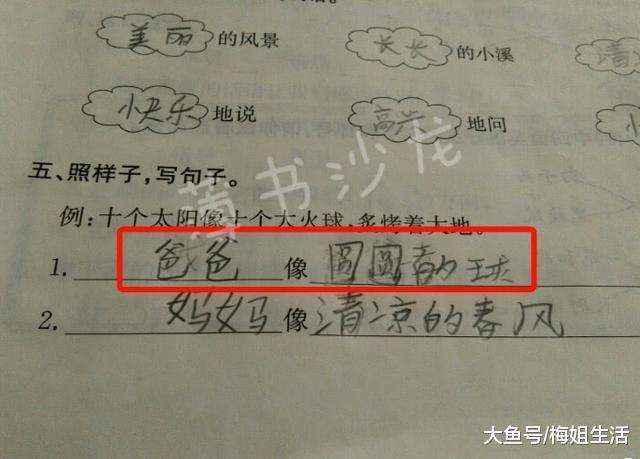 美丽的风景 长长的小溪 清
快乐地说 高兴地问
五、照样子,写句子。
例:十个太阳像十个大火球,炙烤着大地。
1. 爸爸像圆圆的球
2. 妈妈像清凉的春风
薄书沙龙
大鱼号/梅姐生活